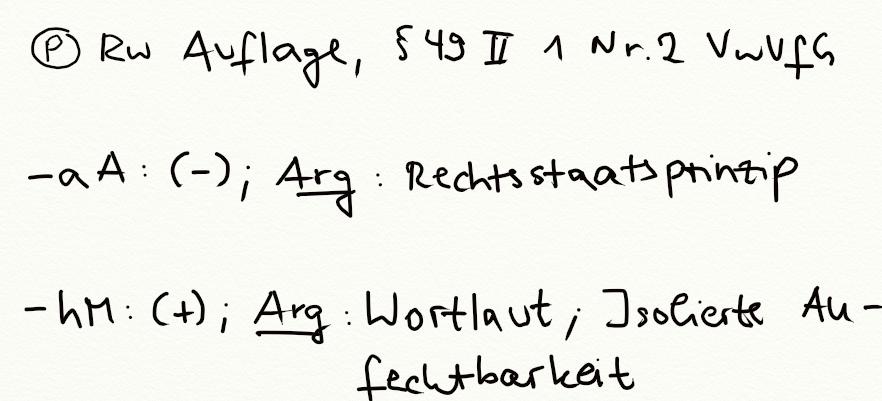 Ⓟ Rw Auflage, § 49 II 1 Nr. 2 VwVfG
- aA: (-); Arg: Rechtsstaatsprinzip
- hM: (+); Arg: Wortlaut; Isolierte An-
fechtbarkeit